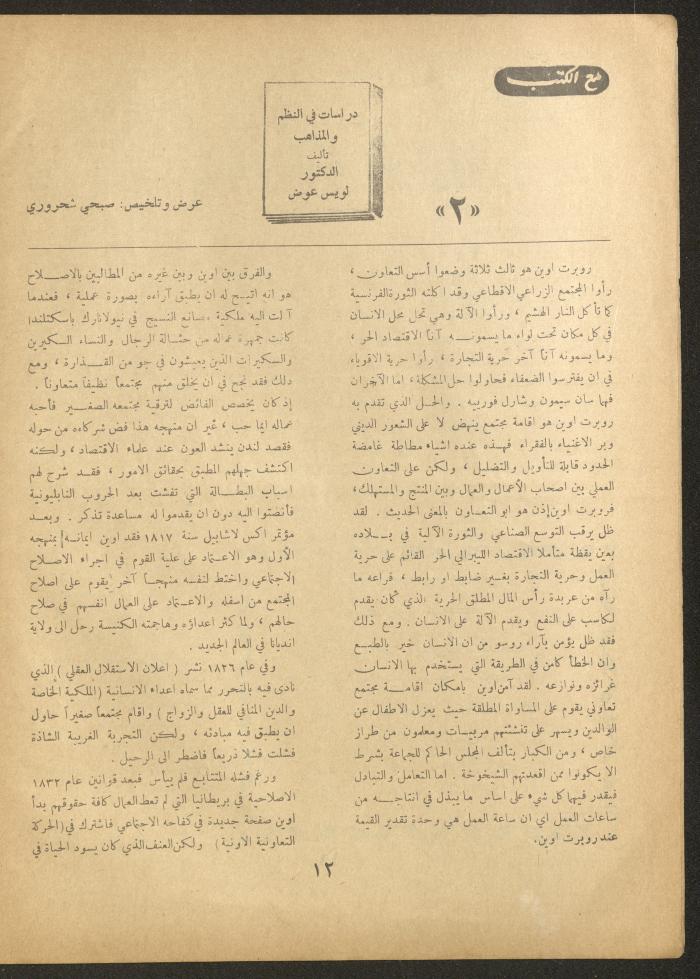 مع الكتب
دراسات في النظم
والمذاهب
تأليف
الدكتور
لويس عوض
«٢»
عرض وتلخيص: صبحي شحروري
روبرت اوين هو ثالث ثلاثة وضعوا أسس التعاون ،
رأوا المجتمع الزراعي الاقطاعي وقد اكلته الثورة الفرنسية
كما تأكل النار الهشيم ، ورأوا الآلة وهي تحل محل الانسان
في كل مكان تحت لواء ما يسمونـــه آناً الاقتصاد الحر ،
وما يسمونه آناً آخر حرية التجارة ، رأوا حرية الاقوياء
في ان يفترسوا الضعفاء فحاولوا حل المشكلة ، اما الآخران
فهما سان سيمون وشارل فورييه . والحـــل الذي تقدم به
روبرت اوين هو اقامة مجتمع ينهض لا على الشعور الديني
وبر الاغنياء بالفقراء فهـــذه عنده اشياء مطاطة غامضة
الحدود قابلة للتأويل والتضليل ، ولكن على التعاون
العملي بين اصحاب الأعمال والعمال وبين المنتج والمستهلك،
فروبرت اوين إذن هو ابو التعـــاون بالمعنى الحديث . لقد
ظل يرقب التوسع الصناعي والثورة الآلية في بـــلاده
بعين يقظة متأملا الاقتصاد الليبرالي الحر القائم على حرية
العمل وحرية التجارة بغـــير ضابط او رابط ، فراعه ما
رآه من عربدة رأس المال المطلق الحرية الذي كان يقدم
لكاسب على النفع ويقدم الآلة على الانسان . ومع ذلك
فقد ظل يؤمن بآراء روسو من ان الانسان خير بالطبـــع
وان الخطأ كامن في الطريقة التي يستخدم بها الانسان
غرائزه ونوازعه . لقد آمن اوين بامكان اقامـــة مجتمع
تعاوني يقوم على المساواة المطلقة حيث يعزل الاطفال عن
الوالدين ويسهر على تنشئتهم مربيسات ومعلمون من طراز
خاص ، ومن الكبار يتألف المجلس الحاكم للجماعة بشرط
الا يكونوا ممن اقعدتهم الشيخوخة . اما التعامل والتبادل
فيقدر فيهما كل شيء على اساس ما يبذل في انتاجـــه من
ساعات العمل اي ان ساعة العمل هي وحدة تقدير القيمة
عند روبرت اوين.
والفرق بين اوين وبين غيره من المطالبين بالاصـــلاح
هو انه اتيـــح له ان يطبق آراءه بصورة عملية ، فعندما
آلت اليه ملكية مصانع النسيج في نيولانارك باسكتلندا
كانت جمهرة عماله من حثـــالة الرجال والنساء السكيرين
والسكيرات الذين يعيشون في جو من القـــذارة ، ومع
ذلك فقد نجح في ان يخلق منهم مجتمعاً نظيفاً متعاوناً .
إذ كان يخصص الفائض لترقية مجتمعه الصغـــير فأحبه
عماله ايما حب ، غير ان منهجه هذا فض شركاءه من حوله
فقصد لندن ينشد العون عند علماء الاقتصاد ، ولكنه
اكتشف جهلهم المطبق بحقائق الامور ، فقـــد شرح لهم
اسباب البطـــالة التي تفشت بعد الحروب النابليونية
فأنصتوا اليه دون ان يقدموا له مساعدة تذكر . وبعـــد
مؤتمر اكس لاشابيل سنة ١٨١٧ فقد اوين ايمانـــه بمنهجه
الأول وهو الاعـــتماد على علية القوم في اجراء الاصـــلاح
الاجتماعي واختط لنفسه منهجـــاً آخر يقوم على اصلاح
المجتمع من اسفله والاعـــتماد على العمال انفسهم في صلاح
حالهم ، ولما كثر اعداؤه وهاجمته الكنيسة رحل الى ولاية
انديانا في العالم الجديد .
وفي عام ١٨٢٦ نشر ( اعلان الاستقلال العقلي ) الذي
نادى فيه بالتحرر مما سماه اعداء الانسانية (الملكية الخاصة
والدين المنافي للعقل والزواج ) واقام مجتمعاً صغيراً حاول
ان يطبق فيه مبادئه ، ولكن التجربة الغريبة الشاذة
فشلت فشلا ذريعاً فاضطر الى الرحيل .
ورغم فشله المتتابع فلم ييأس فبعد قوانين عام ١٨٣٢
الاصلاحية في بريطانيا التي لم تعط العمال كافة حقوقهم بدأ
اوين صفحة جديدة في كفاحه الاجتماعي فاشترك في (الحركة
التعاونية الاونية) ولكن العنف الذي كان يسود الحياة في
١٢